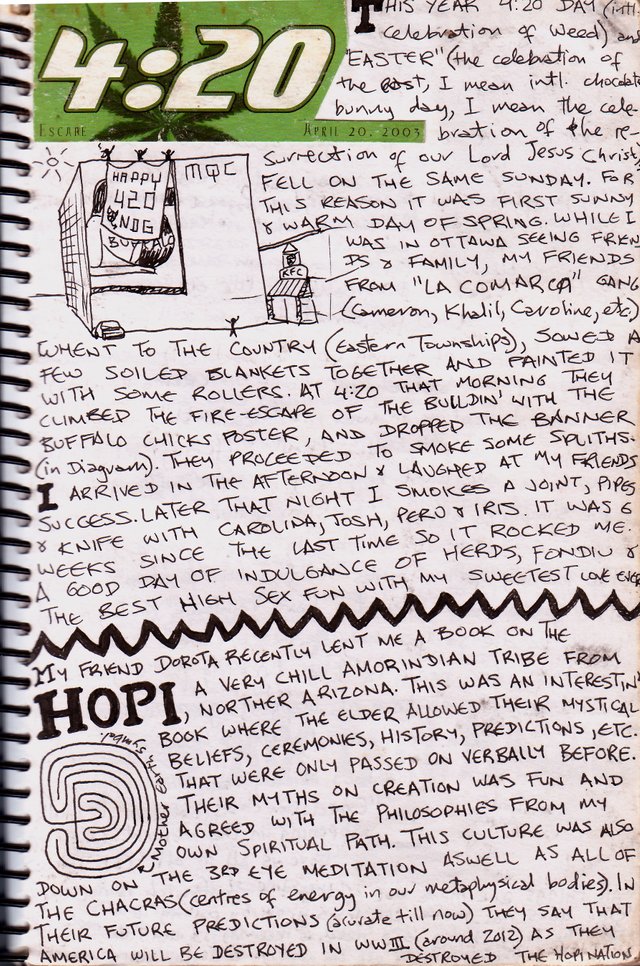 4:20
ESCAPE
APRIL 20, 2003
THIS YEAR 4:20 DAY (intl.
celebration of weed) and
"EASTER" (the celebration of
the east, I mean intl. chocolate
bunny day, I mean the cele-
bration of the re-
surrection of our Lord Jesus Christ)
FELL ON THE SAME SUNDAY. FOR
THIS REASON IT WAS FIRST SUNNY
& WARM DAY OF SPRING. WHILE I
WAS IN OTTAWA SEEING FRIEN
DS & FAMILY, MY FRIENDS
FROM "LA COMARCA" GANG
(Cameron, Khalil, Caroline, etc.)
MQC
HAPPY
420
NDG
BUFFALO
KFC
WHENT TO THE COUNTRY (Eastern Townships), SOWED A
FEW SOILED BLANKETS TOGETHER AND PAINTED IT
WITH SOME ROLLERS. AT 4:20 THAT MORNING THEY
CLIMBED THE FIRE-ESCAPE OF THE BUILDIN' WITH THE
BUFFALO CHICKS POSTER, AND DROPPED THE BANNER
(in Diagram). THEY PROCEEDED TO SMOKE SOME SPLITHS.
I ARRIVED IN THE AFTERNOON & LAUGHED AT MY FRIENDS
SUCCESS. LATER THAT NIGHT I SMOKES A JOINT, PIPES
& KNIFE WITH CAROLINA, JOSH, PERU & IRIS. IT WAS 6
WEEKS SINCE THE LAST TIME SO IT ROCKED ME.
A GOOD DAY OF INDULGANCE OF HERDS, FONDIU &
THE BEST HIGH SEX FUN WITH MY SWEETEST LOVE EVER
MY FRIEND DOROTA RECENTLY LENT ME A BOOK ON THE
HOPI, A VERY CHILL AMORINDIAN TRIBE FROM
NORTHER ARIZONA. THIS WAS AN INTERESTIN'
BOOK WHERE THE ELDER ALLOWED THEIR MYSTICAL
BELIEFS, CEREMONIES, HISTORY, PREDICTIONS, ETC.
THAT WERE ONLY PASSED ON VERBALLY BEFORE.
THEIR MYTHS ON CREATION WAS FUN AND
AGREED WITH THE PHILOSOPHIES FROM MY
OWN SPIRITUAL PATH. THIS CULTURE WAS ALSO
Mother Earth symbol
DOWN ON THE 3RD EYE MEDITATION ASWELL AS ALL OF
THE CHACRAS (centres of energy in our metaphysical bodies). IN
THEIR FUTURE PREDICTIONS (acurate till now) THEY SAY THAT
AMERICA WILL BE DESTROYED IN WWIII (around 2012) AS THEY
DESTROYED THE HOPI NATION